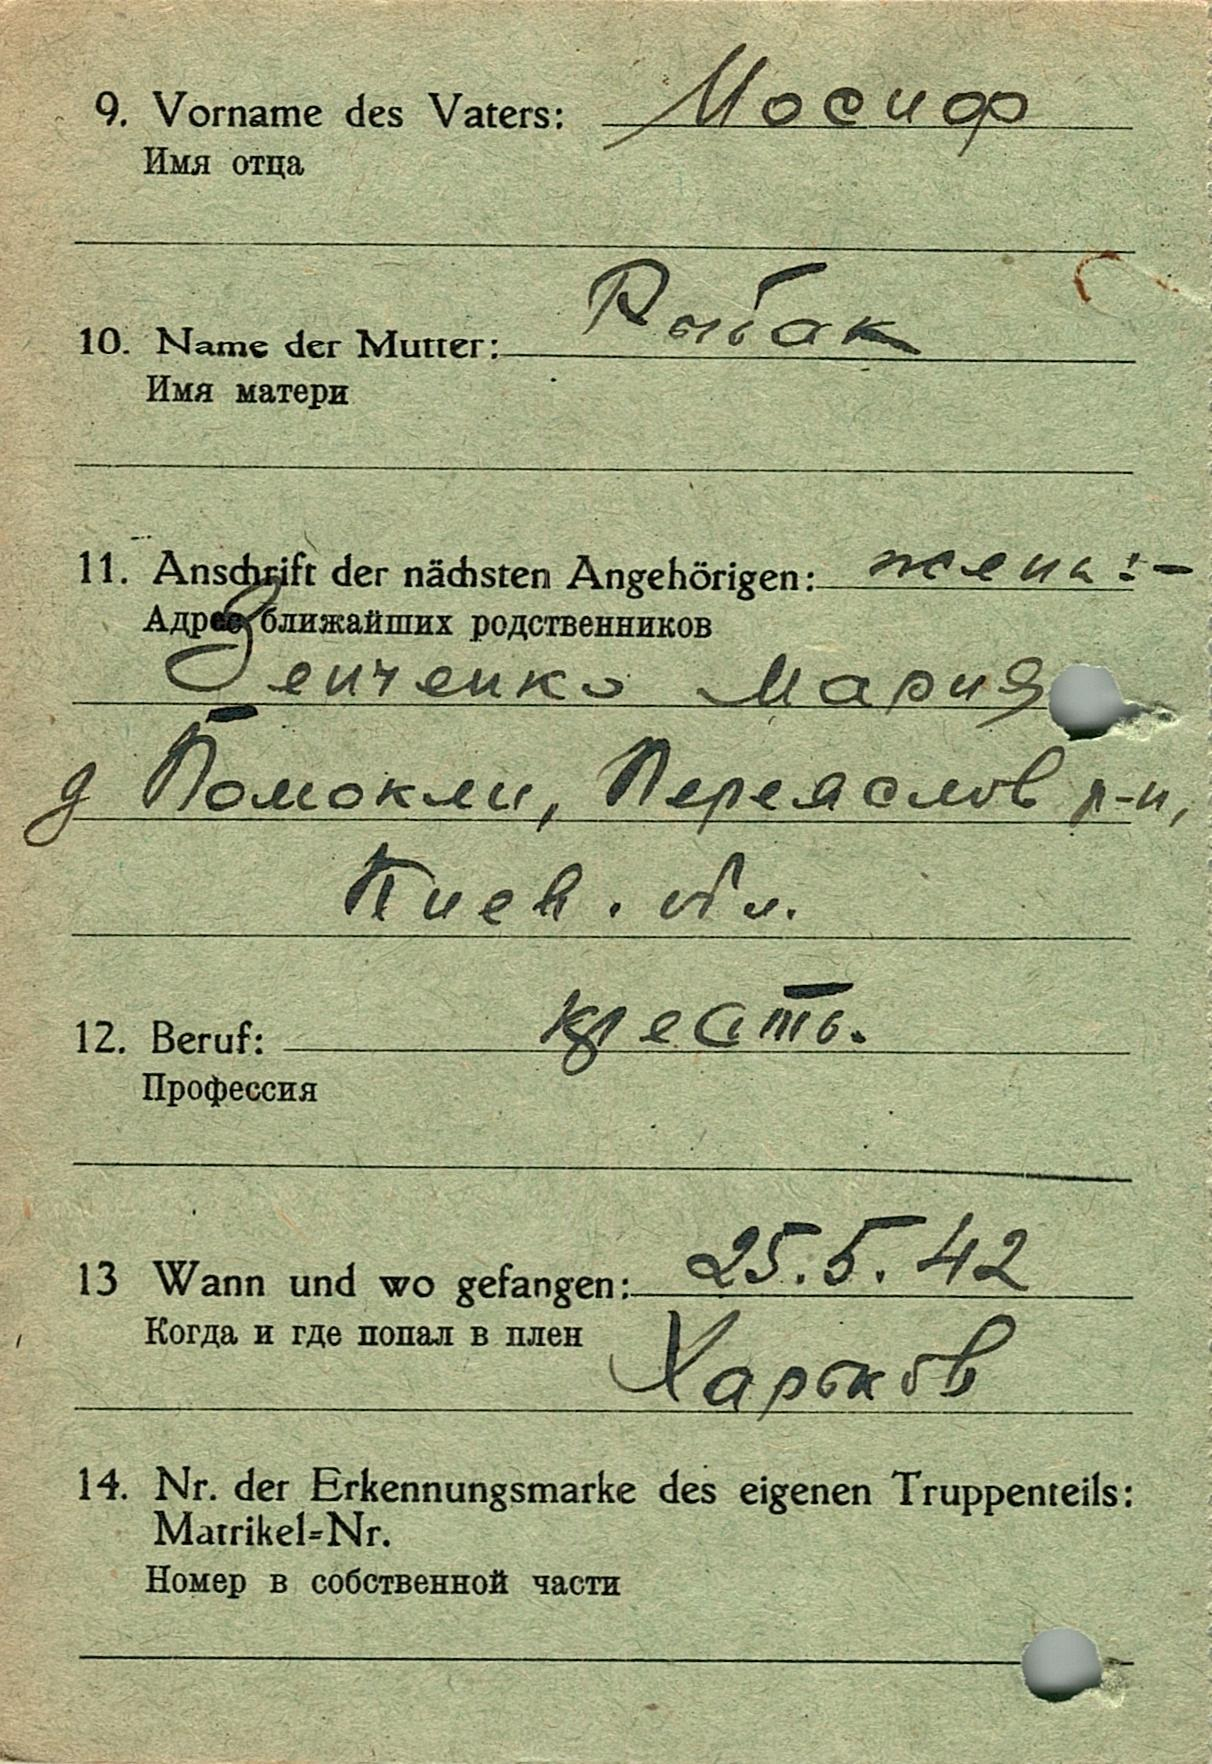 9. Vorname des Vaters: Иосиф
Имя отца
10. Name der Mutter: Рыбак
Имя матери
11. Anschrift der nächsten Angehörigen: жена:-
Адрес ближайших родственников
Зенченко Мария
д Помокли, Переяслов р-н,
Киев. обл.
12. Beruf: крестъ.
Профессия
13 Wann und wo gefangen: 25.5.42
Когда и где попал в плен Харьков
14. Nr. der Erkennungsmarke des eigenen Truppenteils:
Matrikel=Nr.
Номер в собственной части